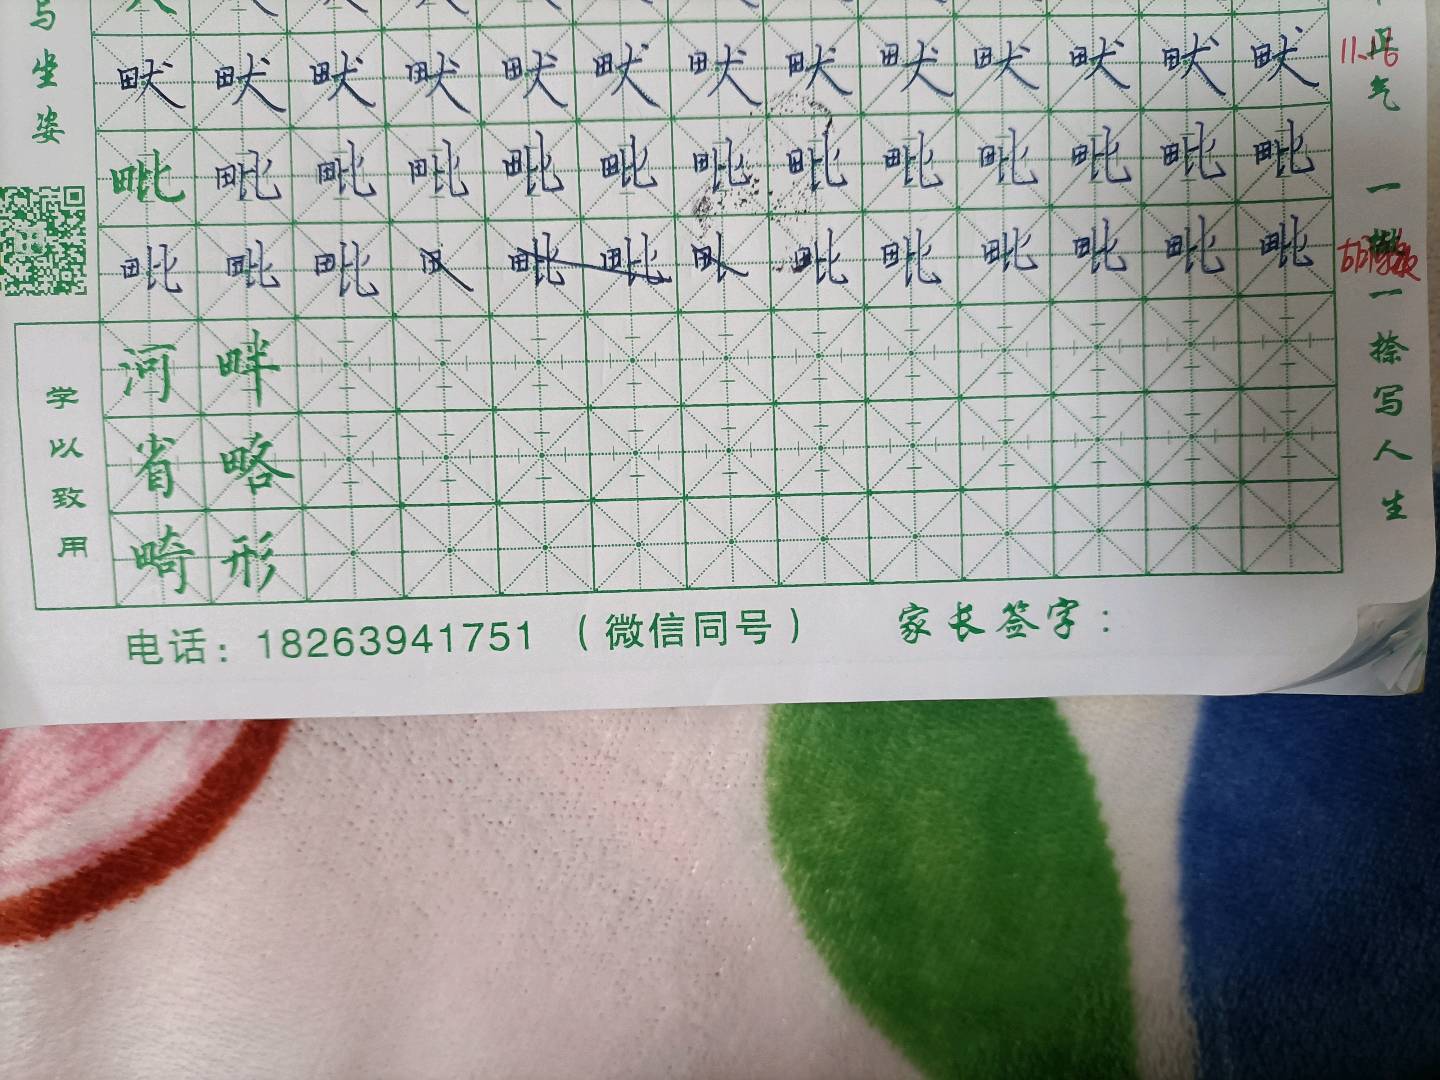 写坐姿
畎畎畎畎畎畎畎畎畎畎畎畎畎
毗毗毗毗毗毗毗毗毗毗毗毗毗
毗毗毗 毗毗 毗毗毗毗毗毗
学以致用
河畔
省略
畸形
正气
一撇一捺写人生
11.16
电话：18263941751（微信同号） 家长签字：